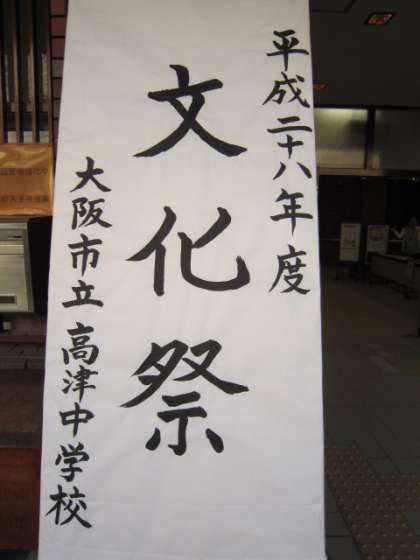 平成二十八年度
文化祭
大阪市立 高津中学校